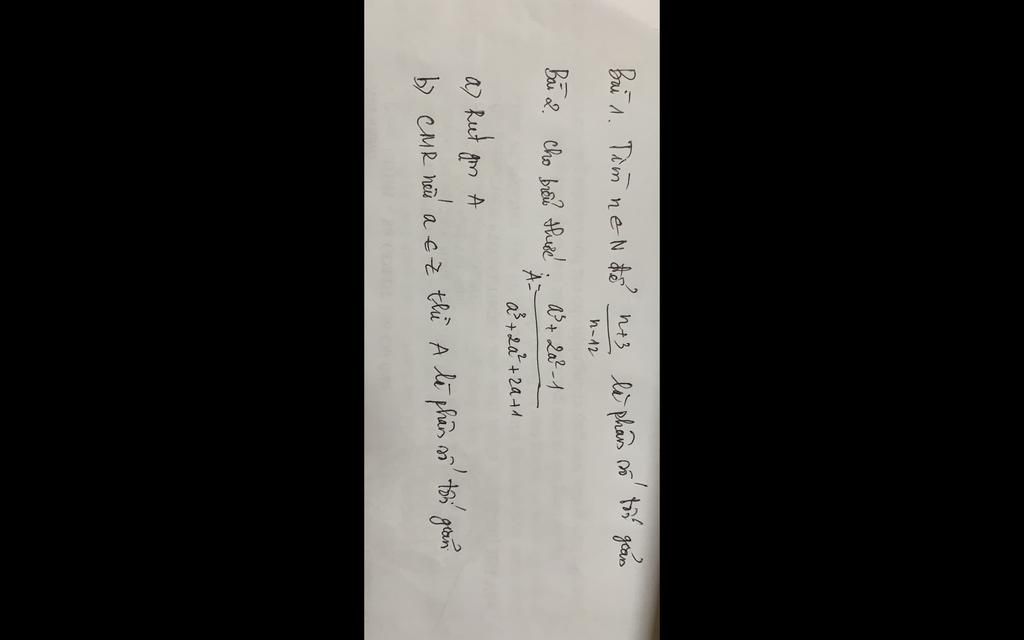 Bài 1. Tìm n ∈ N để n+3/n-12 là phân số tối giản
Bài 2. cho biểu thức: A= a³+2a²-1/a³+2a²+2a+1
a) Rút gọn A
b) CMR nếu a ∈ Z thì A là phân số tối giản